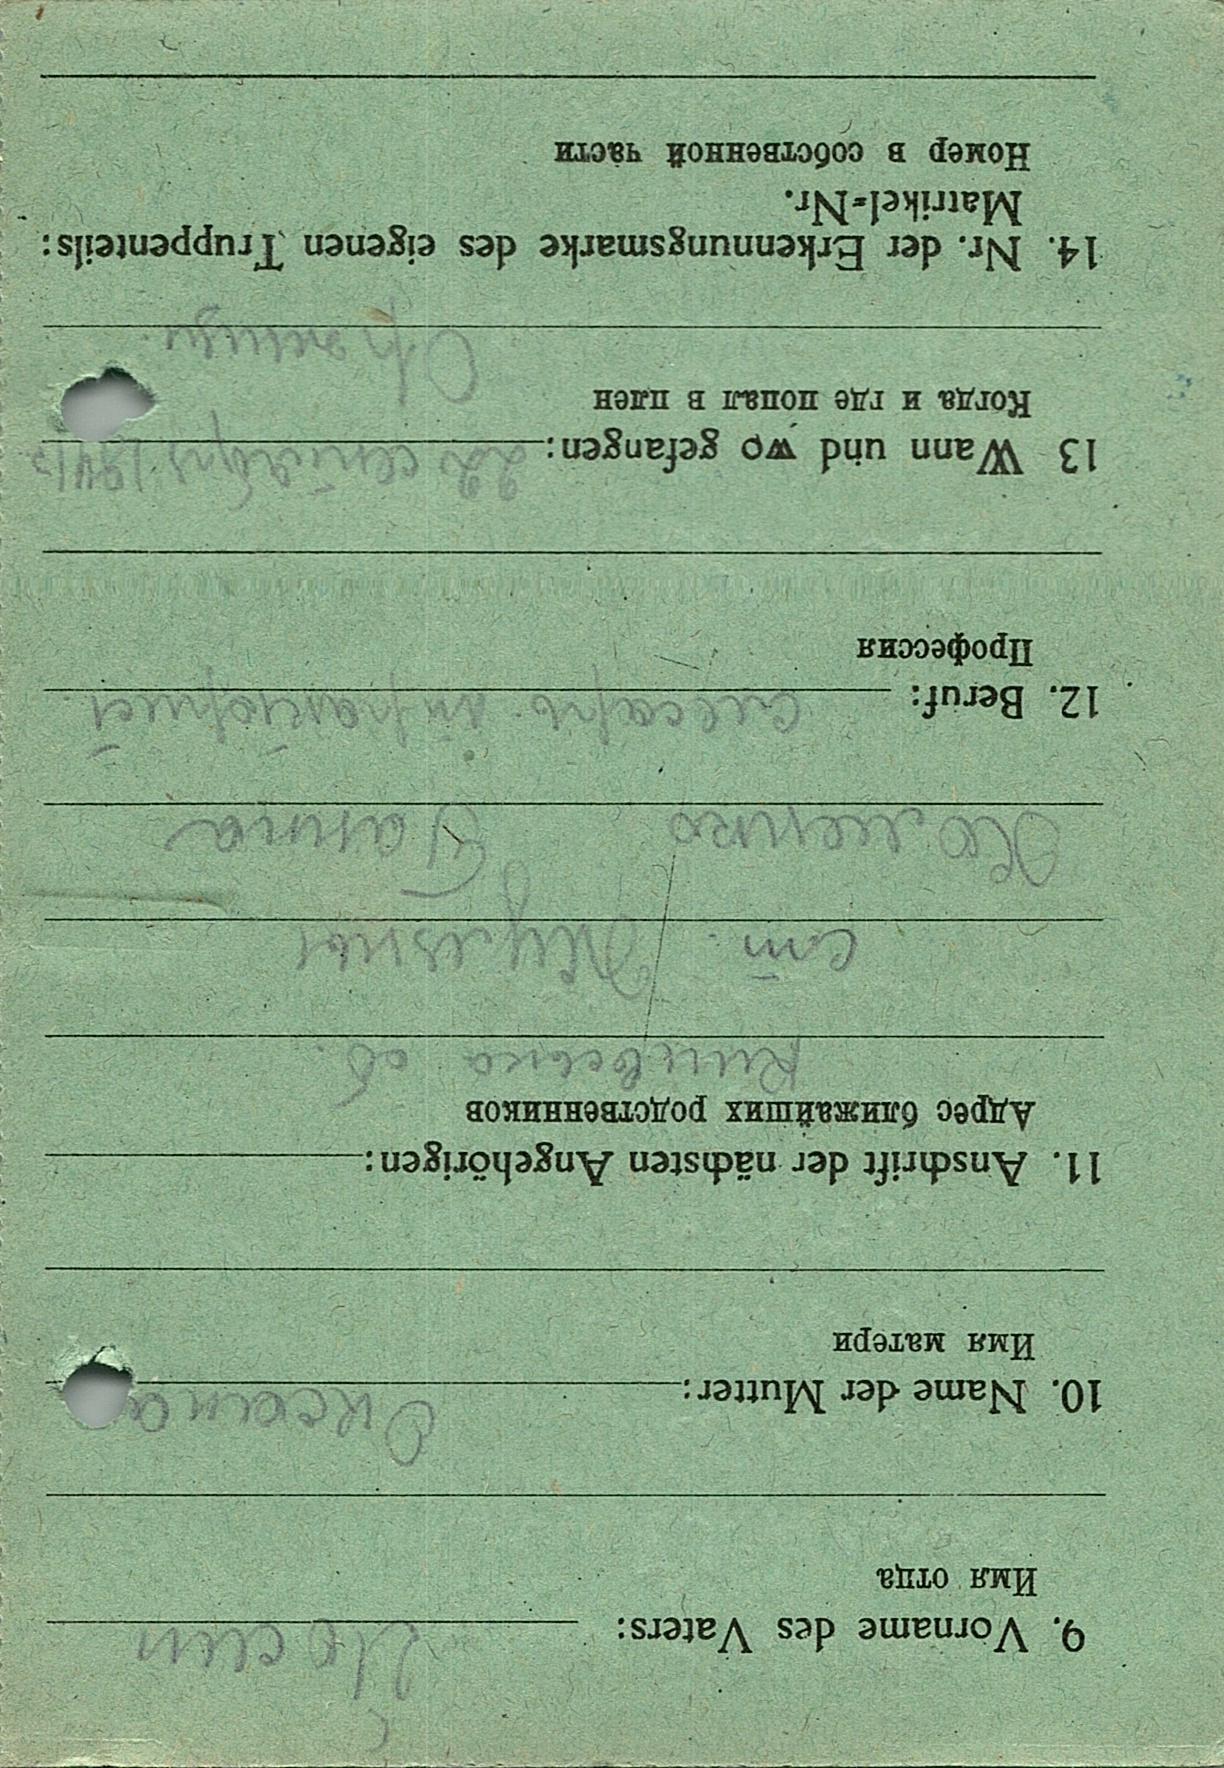 9. Vorname des Vaters: Йосип
Имя отца
10. Name der Mutter: Оксана
Имя матери
11. Anschrift der nächsten Angehörigen:
Адрес ближайших родственников
об.
ст. Жуляны
Ганна
12. Beruf: слесарь
Профессия
13 Wann und wo gefangen: 22 сентября 1941 г
Когда и где попал в плен
14. Nr. der Erkennungsmarke des eigenen Truppenteils:
Matrikel-Nr.
Номер в собственной части